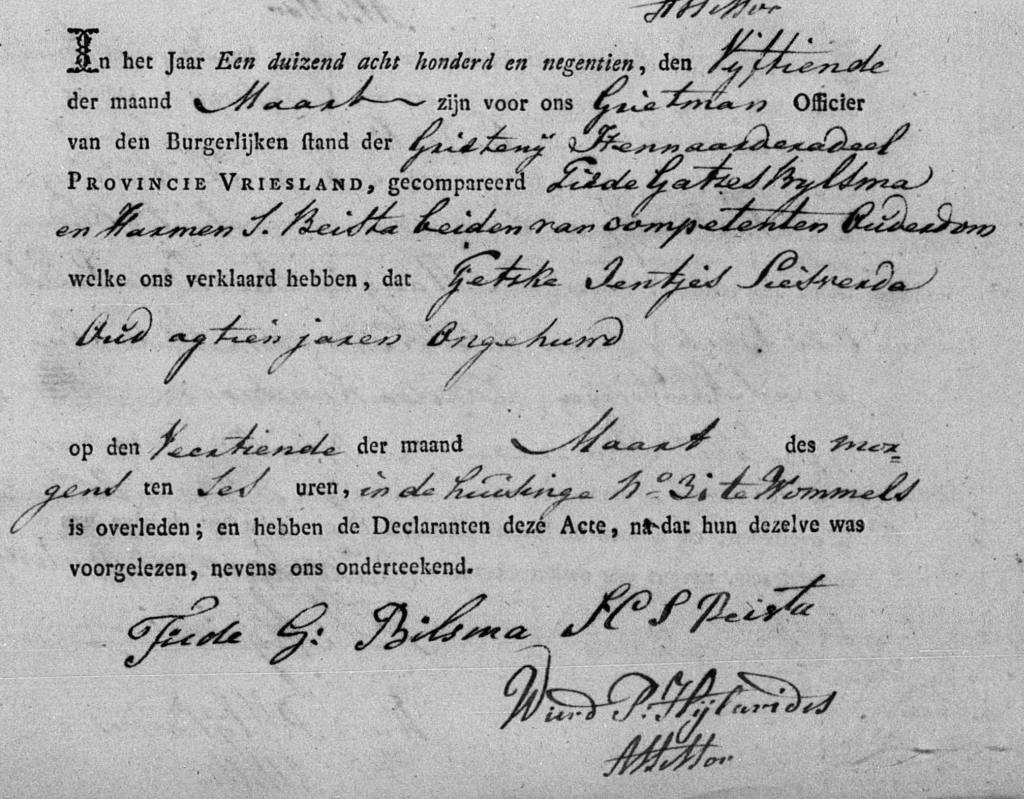 Assessor
In het Jaar Een duizend acht honderd en negentien, den Vijftiende
der maand Maart zijn voor ons Grietman Officier
van den Burgerlijken stand der Grieteny Hennaarderadeel
PROVINCIE VRIESLAND, gecompareerd Tiede Gatzes Bylsma
en Harmen S. Beista beiden van competenten Ouderdom
welke ons verklaard hebben, dat Tjetske Jentjes
Oud agtien jaren Ongehuwd
op den Veertiende der maand Maart des mor=
gens ten Ses uren, in de huisinge No. 31 te Wommels
is overleden; en hebben de Declaranten deze Acte, na dat hun dezelve was
voorgelezen, nevens ons onderteekend.
Tiede G: Bilsma H S Beista
Wierd P. Hylarides
Assessor